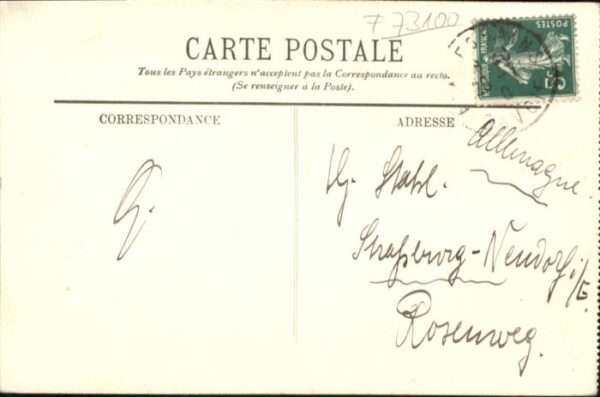 F 73100
CARTE POSTALE
Tous les Pays étrangers n'acceptent pas la Correspondance au recto.
(Se renseigner à la Poste).
POSTES
5
CORRESPONDANCE
ADRESSE
Allemagne.
Hg. Stahl.
Straßburg-Neudorf i/E.
Rosenweg.